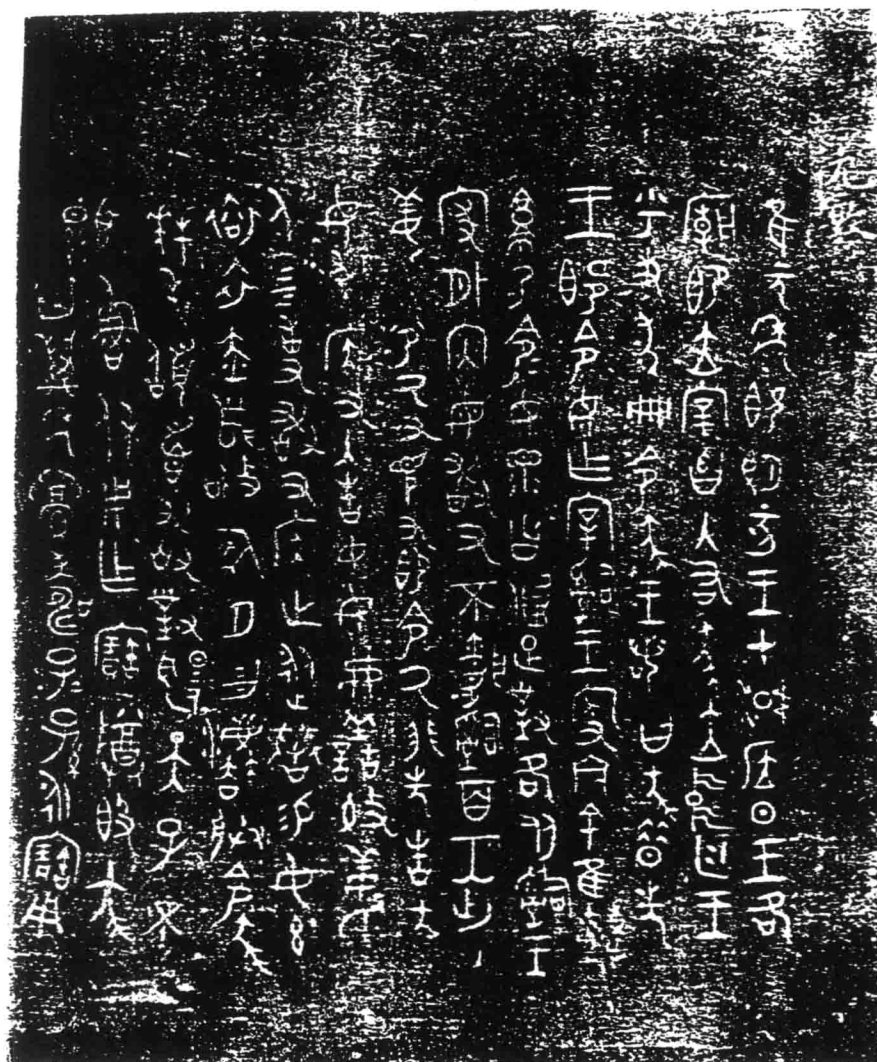 隹元年既望丁亥王才減㡴旦王各
廟即立宰曶入右蔡立中廷王
乎史冊令蔡王若曰蔡昔先
王既令女乍宰𤔲王家今余隹
乃令令女眔曶疋對各死𤔲王
家外內母敢又不聞𤔲百工出入
姜氏令氒又見又即令氒非先告蔡
母敢疾又入告女母弗善效姜氏
人勿事敢又疾止從獄易女玄
袞衣赤舄敬夙夕勿灋朕令蔡
拜手首敢對揚天子不
顯魯休用乍寶尊簋蔡
其萬年眉壽子子孫孫永寶用